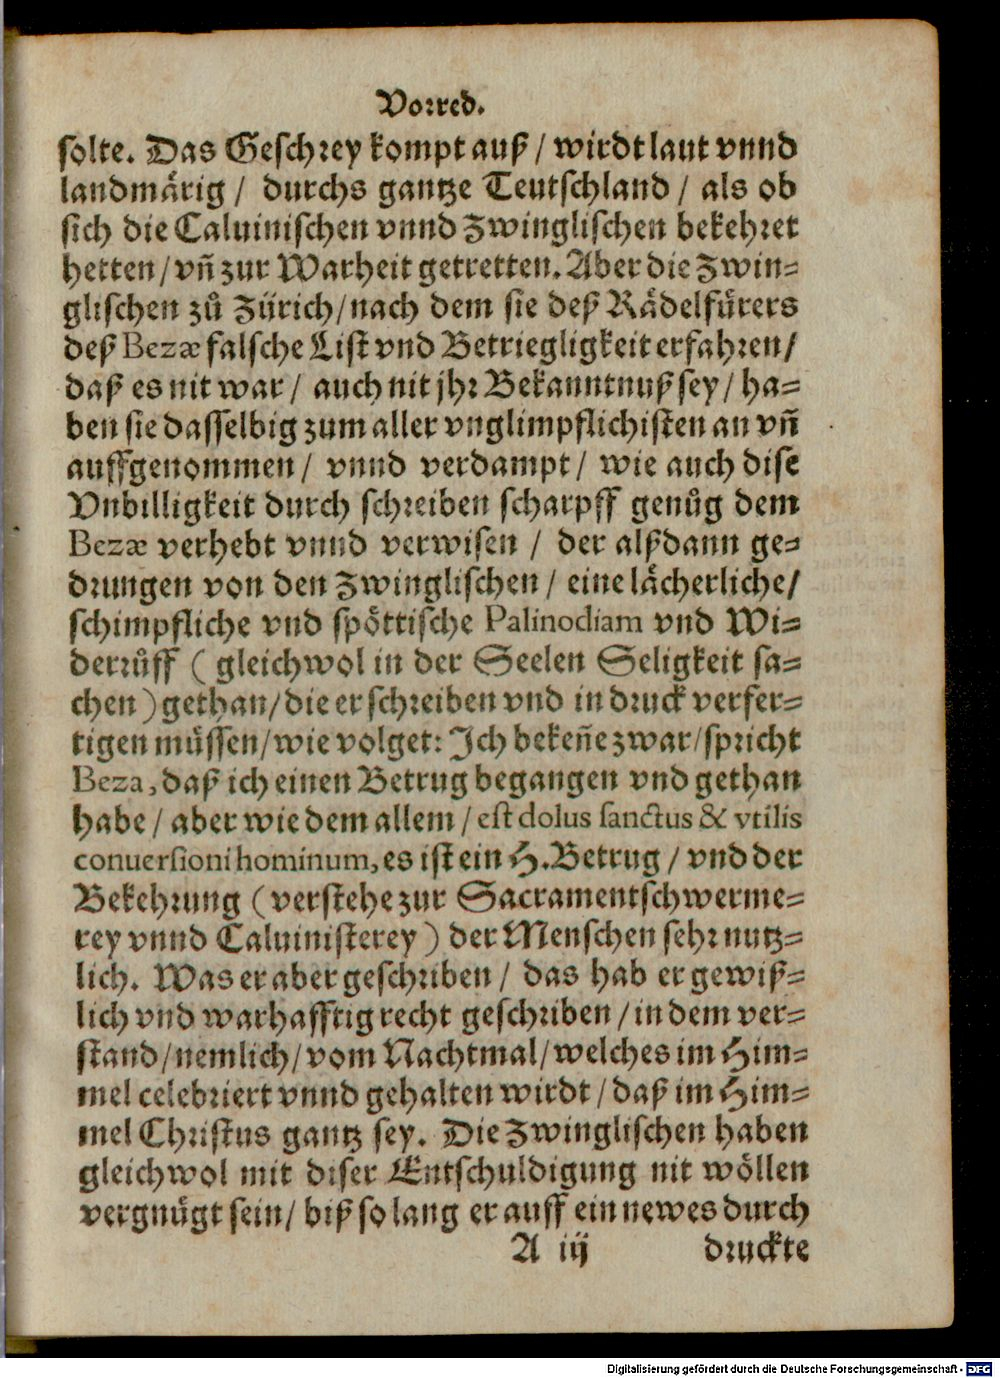 Vorred.
solte. Das Geschrey kompt auß / wirdt laut vnnd
landmärig / durchs gantze Teutschland / als ob
sich die Caluinischen vnnd Zwinglischen bekehret
hetten / vñ zur Warheit getretten. Aber die Zwin⸗
glischen zů Zürich / nach dem sie deß Rädelfürers
deß Bezæ falsche List vnd Betriegligkeit erfahren /
daß es nit war / auch nit jhr Bekanntnuß sey / ha⸗
ben sie dasselbig zum aller vnglimpflichisten an vñ
auffgenommen / vnnd verdampt / wie auch dise
Vnbilligkeit durch schreiben scharpff genůg dem
Bezæ verhebt vnnd verwisen / der alßdann ge⸗
drungen von den Zwinglischen / eine lächerliche /
schimpfliche vnd spöttische Palinodiam vnd Wi⸗
derrůff ( gleichwol in der Seelen Seligkeit sa⸗
chen ) gethan / die er schreiben vnd in druck verfer⸗
tigen müssen / wie volget: Ich bekeñe zwar / spricht
Beza, daß ich einen Betrug begangen vnd gethan
habe / aber wie dem allem / est dolus sanctus & vtilis
conuersioni hominum, es ist ein H. Betrug / vnd der
Bekehrung ( verstehe zur Sacramentschwerme⸗
rey vnnd Caluinisterey ) der Menschen sehr nutz⸗
lich. Was er aber geschriben / das hab er gewiß⸗
lich vnd warhafftig recht geschriben / in dem ver⸗
stand / nemlich / vom Nachtmal / welches im Him⸗
mel celebriert vnnd gehalten wirdt / daß im Him⸗
mel Christus gantz sey. Die Zwinglischen haben
gleichwol mit diser Entschuldigung nit wöllen
vergnügt sein / biß so lang er auff ein newes durch
A iij druckte
Digitalisierung gefördert durch die Deutsche Forschungsgemeinschaft - DFG